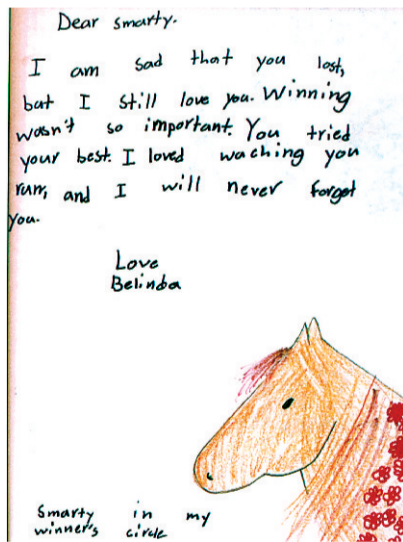 Dear smarty.
I am sad that you lost,
but I still love you. Winning
wasn't so important. You tried
your best. I loved waching you
run, and I will never forget
you.
Love
Belinda
Smarty in my
winner's circle